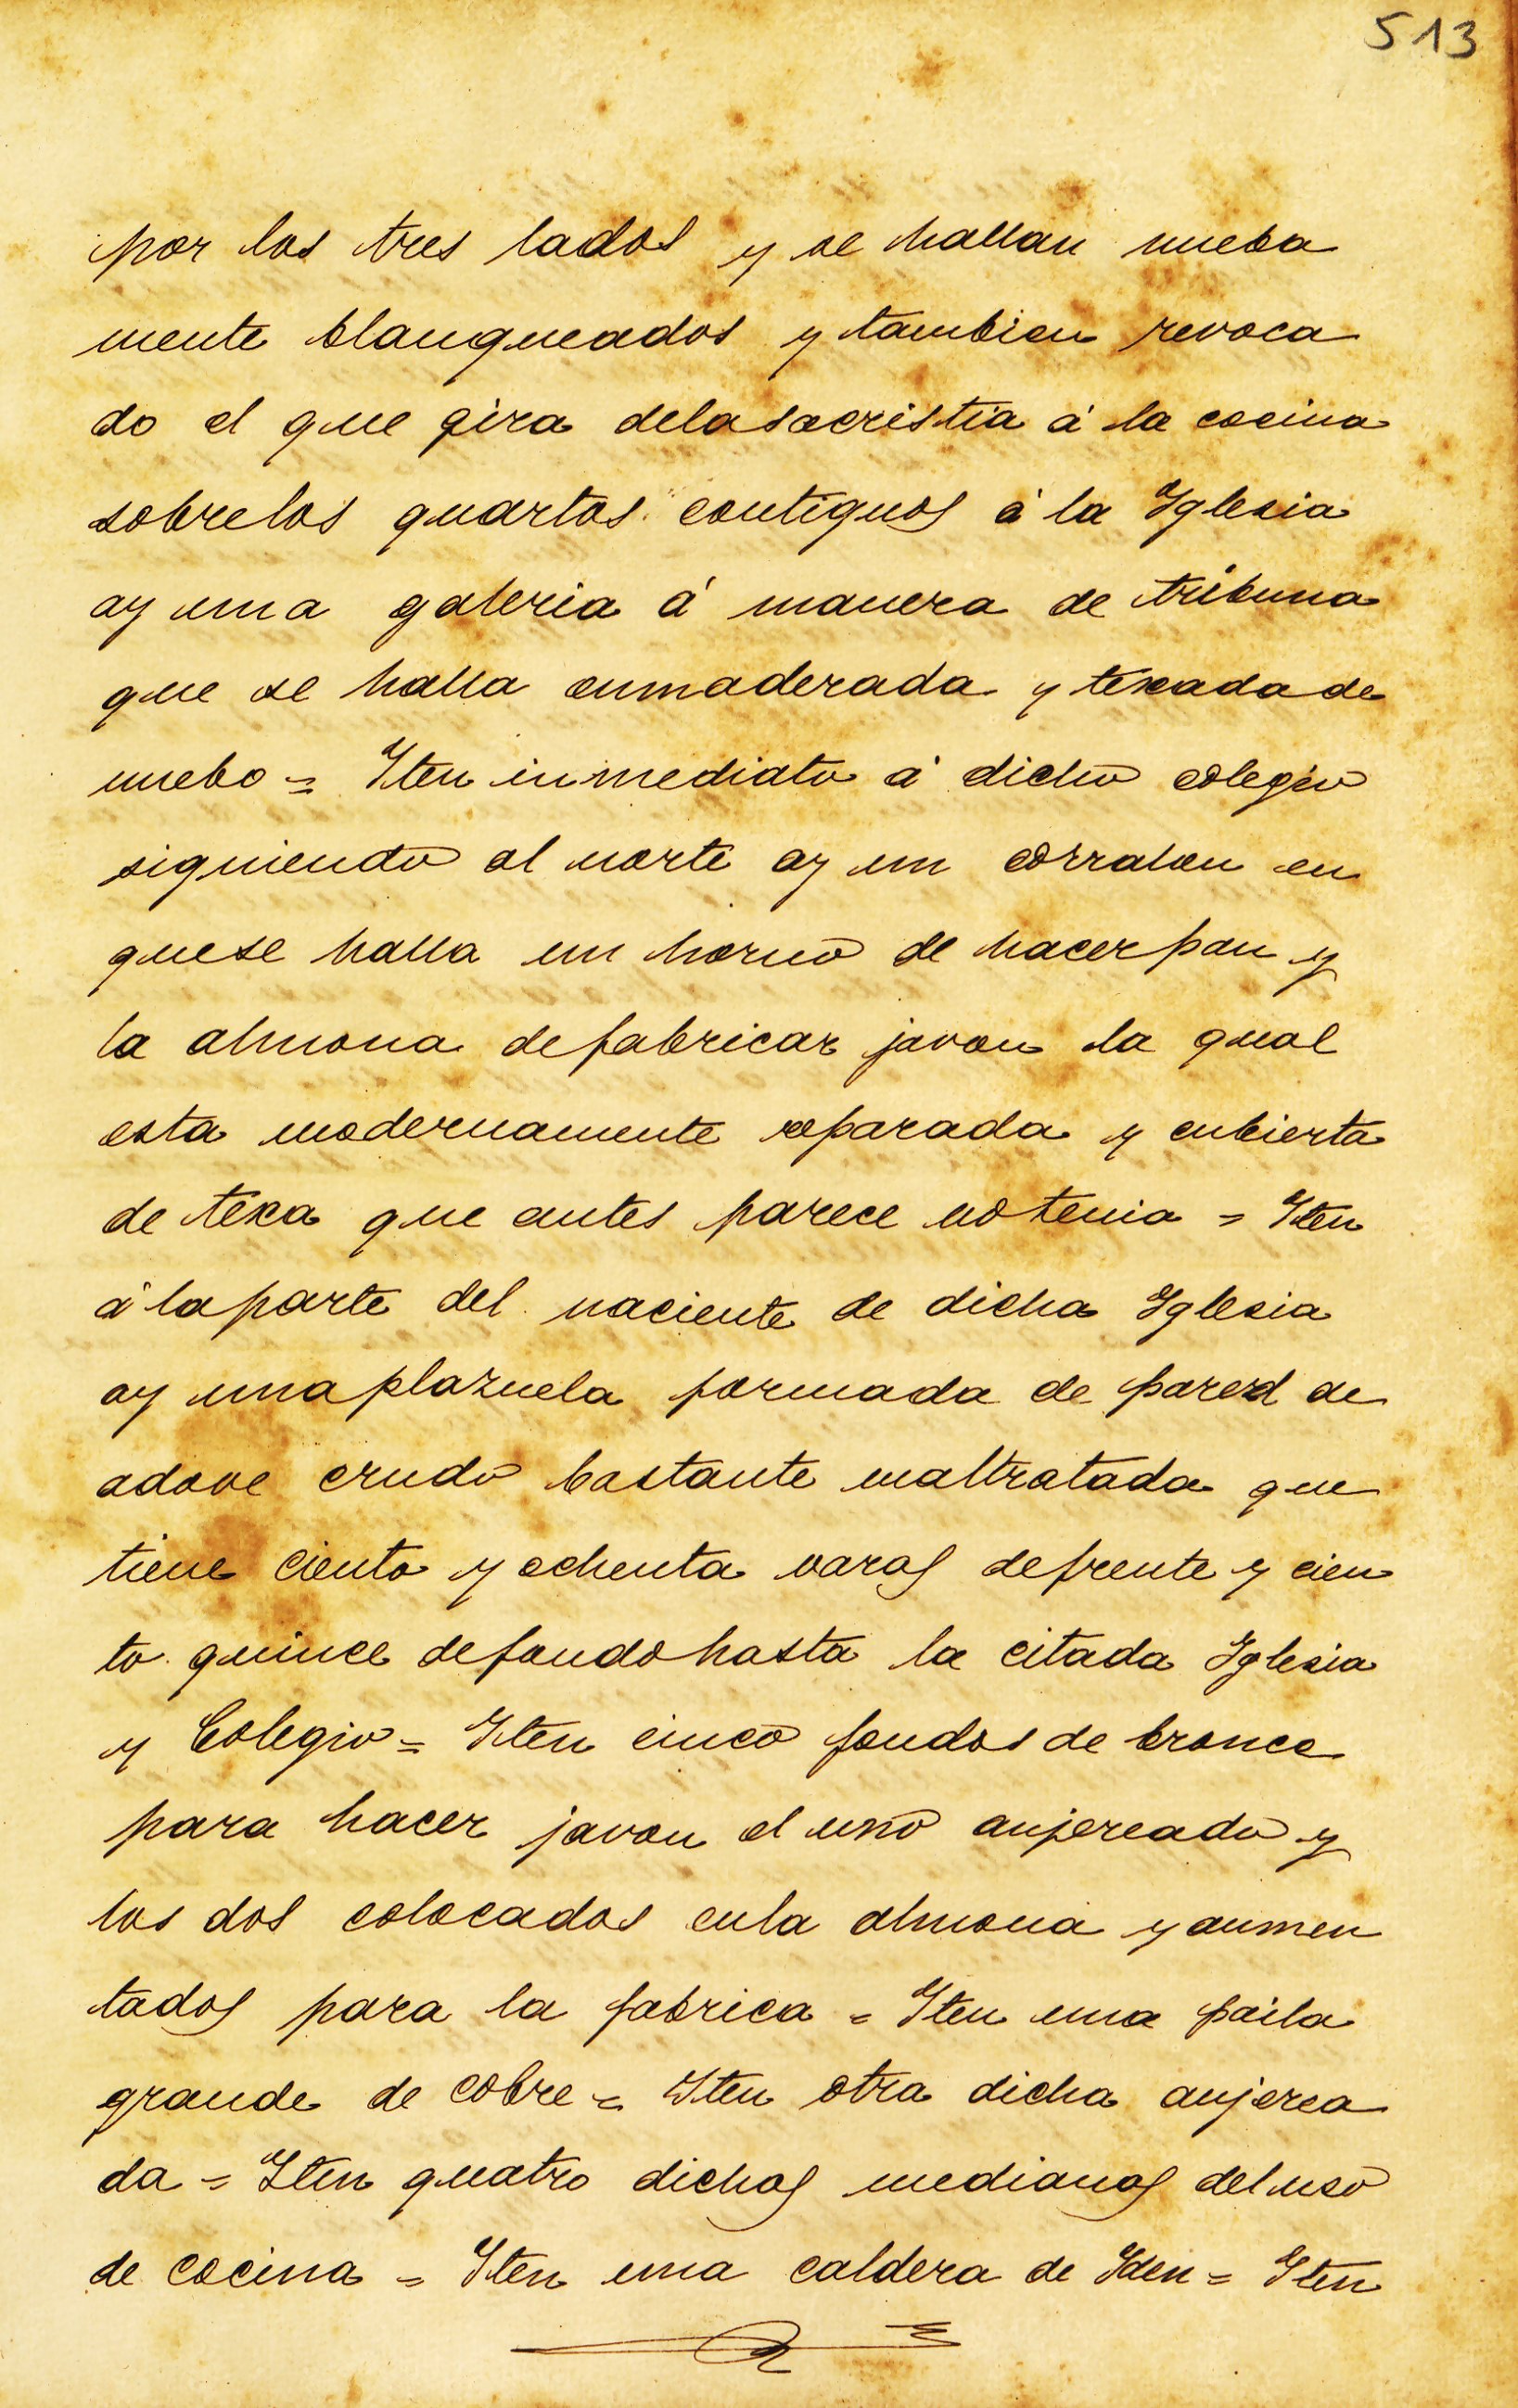 513
por los tres lados y se hallan nueba
mente blanqueados y tambien revoca
do el que gira delasacristia á la cocina
sobrelos quartos contiguos á la Yglesia
ay una galeria á manera de tribuna
que se halla enmaderada y texada de
nuebo = Yten inmediato á dicho colegio
siguiendo al norte ay un corralon en
quese halla un horno de hacer pan y
la almona defabricar javon la qual
esta modernamente reparada y cubierta
de texa que antes parece no tenia = Yten
á laparte del naciente de dicha Yglesia
ay unaplazuela formada de pared de
adove crudo bastante maltratada que
tiene ciento y ochenta varas defrente y cien
to quince defondo hasta la citada Yglesia
y Colegio = Yten cinco fondos de bronce
para hacer javon el uno aujereado y
los dos colocados enla almona y aumen
tados para la fabrica = Yten una paila
grande de cobre = Yten otra dicha aujerea
da = Yten quatro dichas medianas deluso
de cocina = Yten una caldera de Yden = Yten